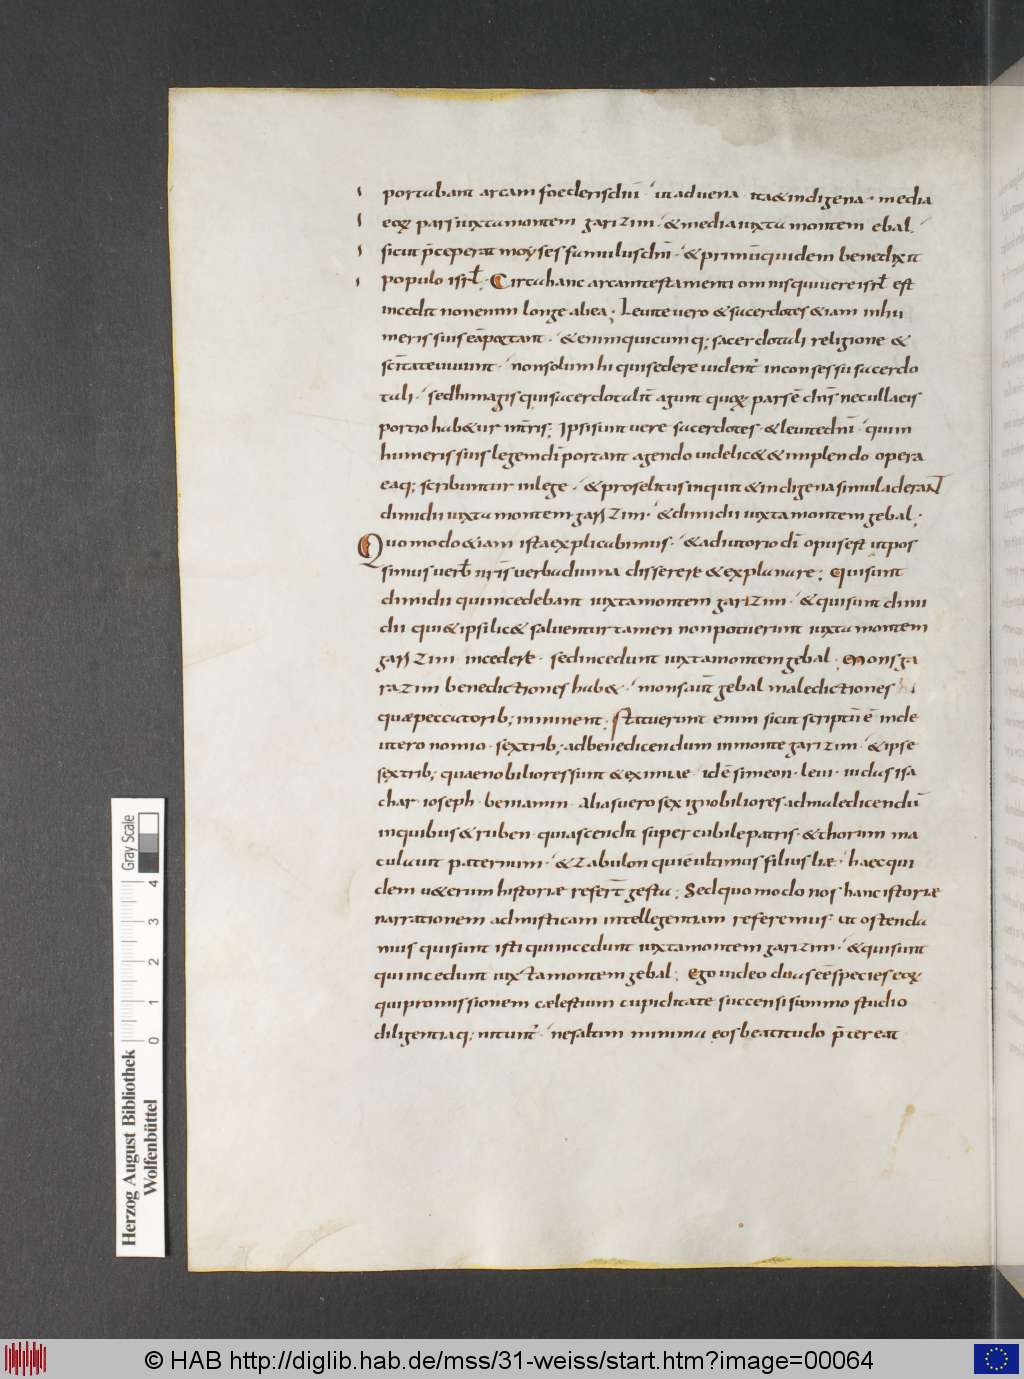 portabant arcam foederis dnī · ut aduena ita & indigena · media
eoꝝ pars iuxta montem garizim · & media iuxta montem ebal ·
sicut p̄ceperat moyses famulus dnī · & primū quidem benedixit
populo isrl̄ · Circa hanc arcam testamenti omnis qui uere isrl̄ est
incedit non enim longe ab ea ; Leuite uero & sacerdotes etiam in hu
meris suis eā portant · & enim quicumq; sacerdotali religione &
sc̄itate uiuunt · non solum hi qui sedere uident̄ in consessu sacerdo
tali · sed hi magis qui sacerdotalit̄ agunt quoꝝ pars ē dn̄s nec ulla eis
portio hab&ur in t̄ris ; Ipsi sunt uere sacerdotes & leuite dnī · qui in
humeris suis legem dī portant agendo uidelic& & implendo opera
ea q; scribuntur in lege · & proselitus inquit & indigena simul aderaNT
dimidii iuxta montem garizim · & dimidii iuxta montem gebal ·
Quomodo & iam ista explicabimus · & adiutorio dī opus est ut pos
simus uerb̄ nr̄is uerba diuina disserere & explanare ; Qui sunt
dimidii qui incedebant iuxta montem garizim · & qui sunt dimi
dii qui & ipsi lic& saluentur tamen non potuerunt iuxta montem
garizim incedere · sed incedunt iuxta montem gebal · Mons ga
razim benedictiones hab& · mons aut̄ gebal maledictiones
quae peccatorib; imminent · Statuerunt enim sicut scriptū ē in de
utero nomio · sex trib; ad benedicendum in monte garizim · & ipse
sex trib; quae nobiliores sunt & eximiae · idē simeon · leui · iudas isa
char · ioseph · beniamin · alias uero sex ignobiliores ad maledicendū
in quibus & ruben qui ascendit super cubile patris · & thorum ma
culauit paternum · & zabulon qui ē ultimus filius liæ · haec qui
dem u&erum historiæ refert̄ gesta ; Sed quomodo nos hanc istoriæ
narrationem ad misticam intellegentiam referemus · ut ostenda
mus qui sunt isti qui incedunt iuxta montem garizim · & qui sunt
qui incedunt iuxta montem gebal ; Ego uideo duas ēē species eoꝝ
qui promissionem cælestium cupiditate succensi summo studio
diligentiaq; nitunt̄ · ne saltim minima eos beatitudo p̄tereat
Gray Scale
0 1 2 3 4
Herzog August Bibliothek
Wolfenbüttel
© HAB http://diglib.hab.de/mss/31-weiss/start.htm?image=00064